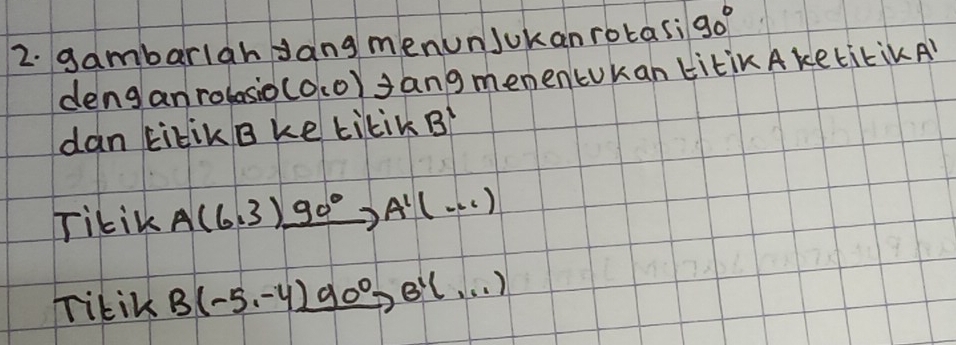 2. gambarlah yang menunjukan rotasi 90°
dengan rotasi o(0,0) yang menentukan titik A ke titik A'
dan titik B ke titik B'
Titik A(6,3) 90° → A'(...)
Titik B(-5,-4) 90° → B'(...)